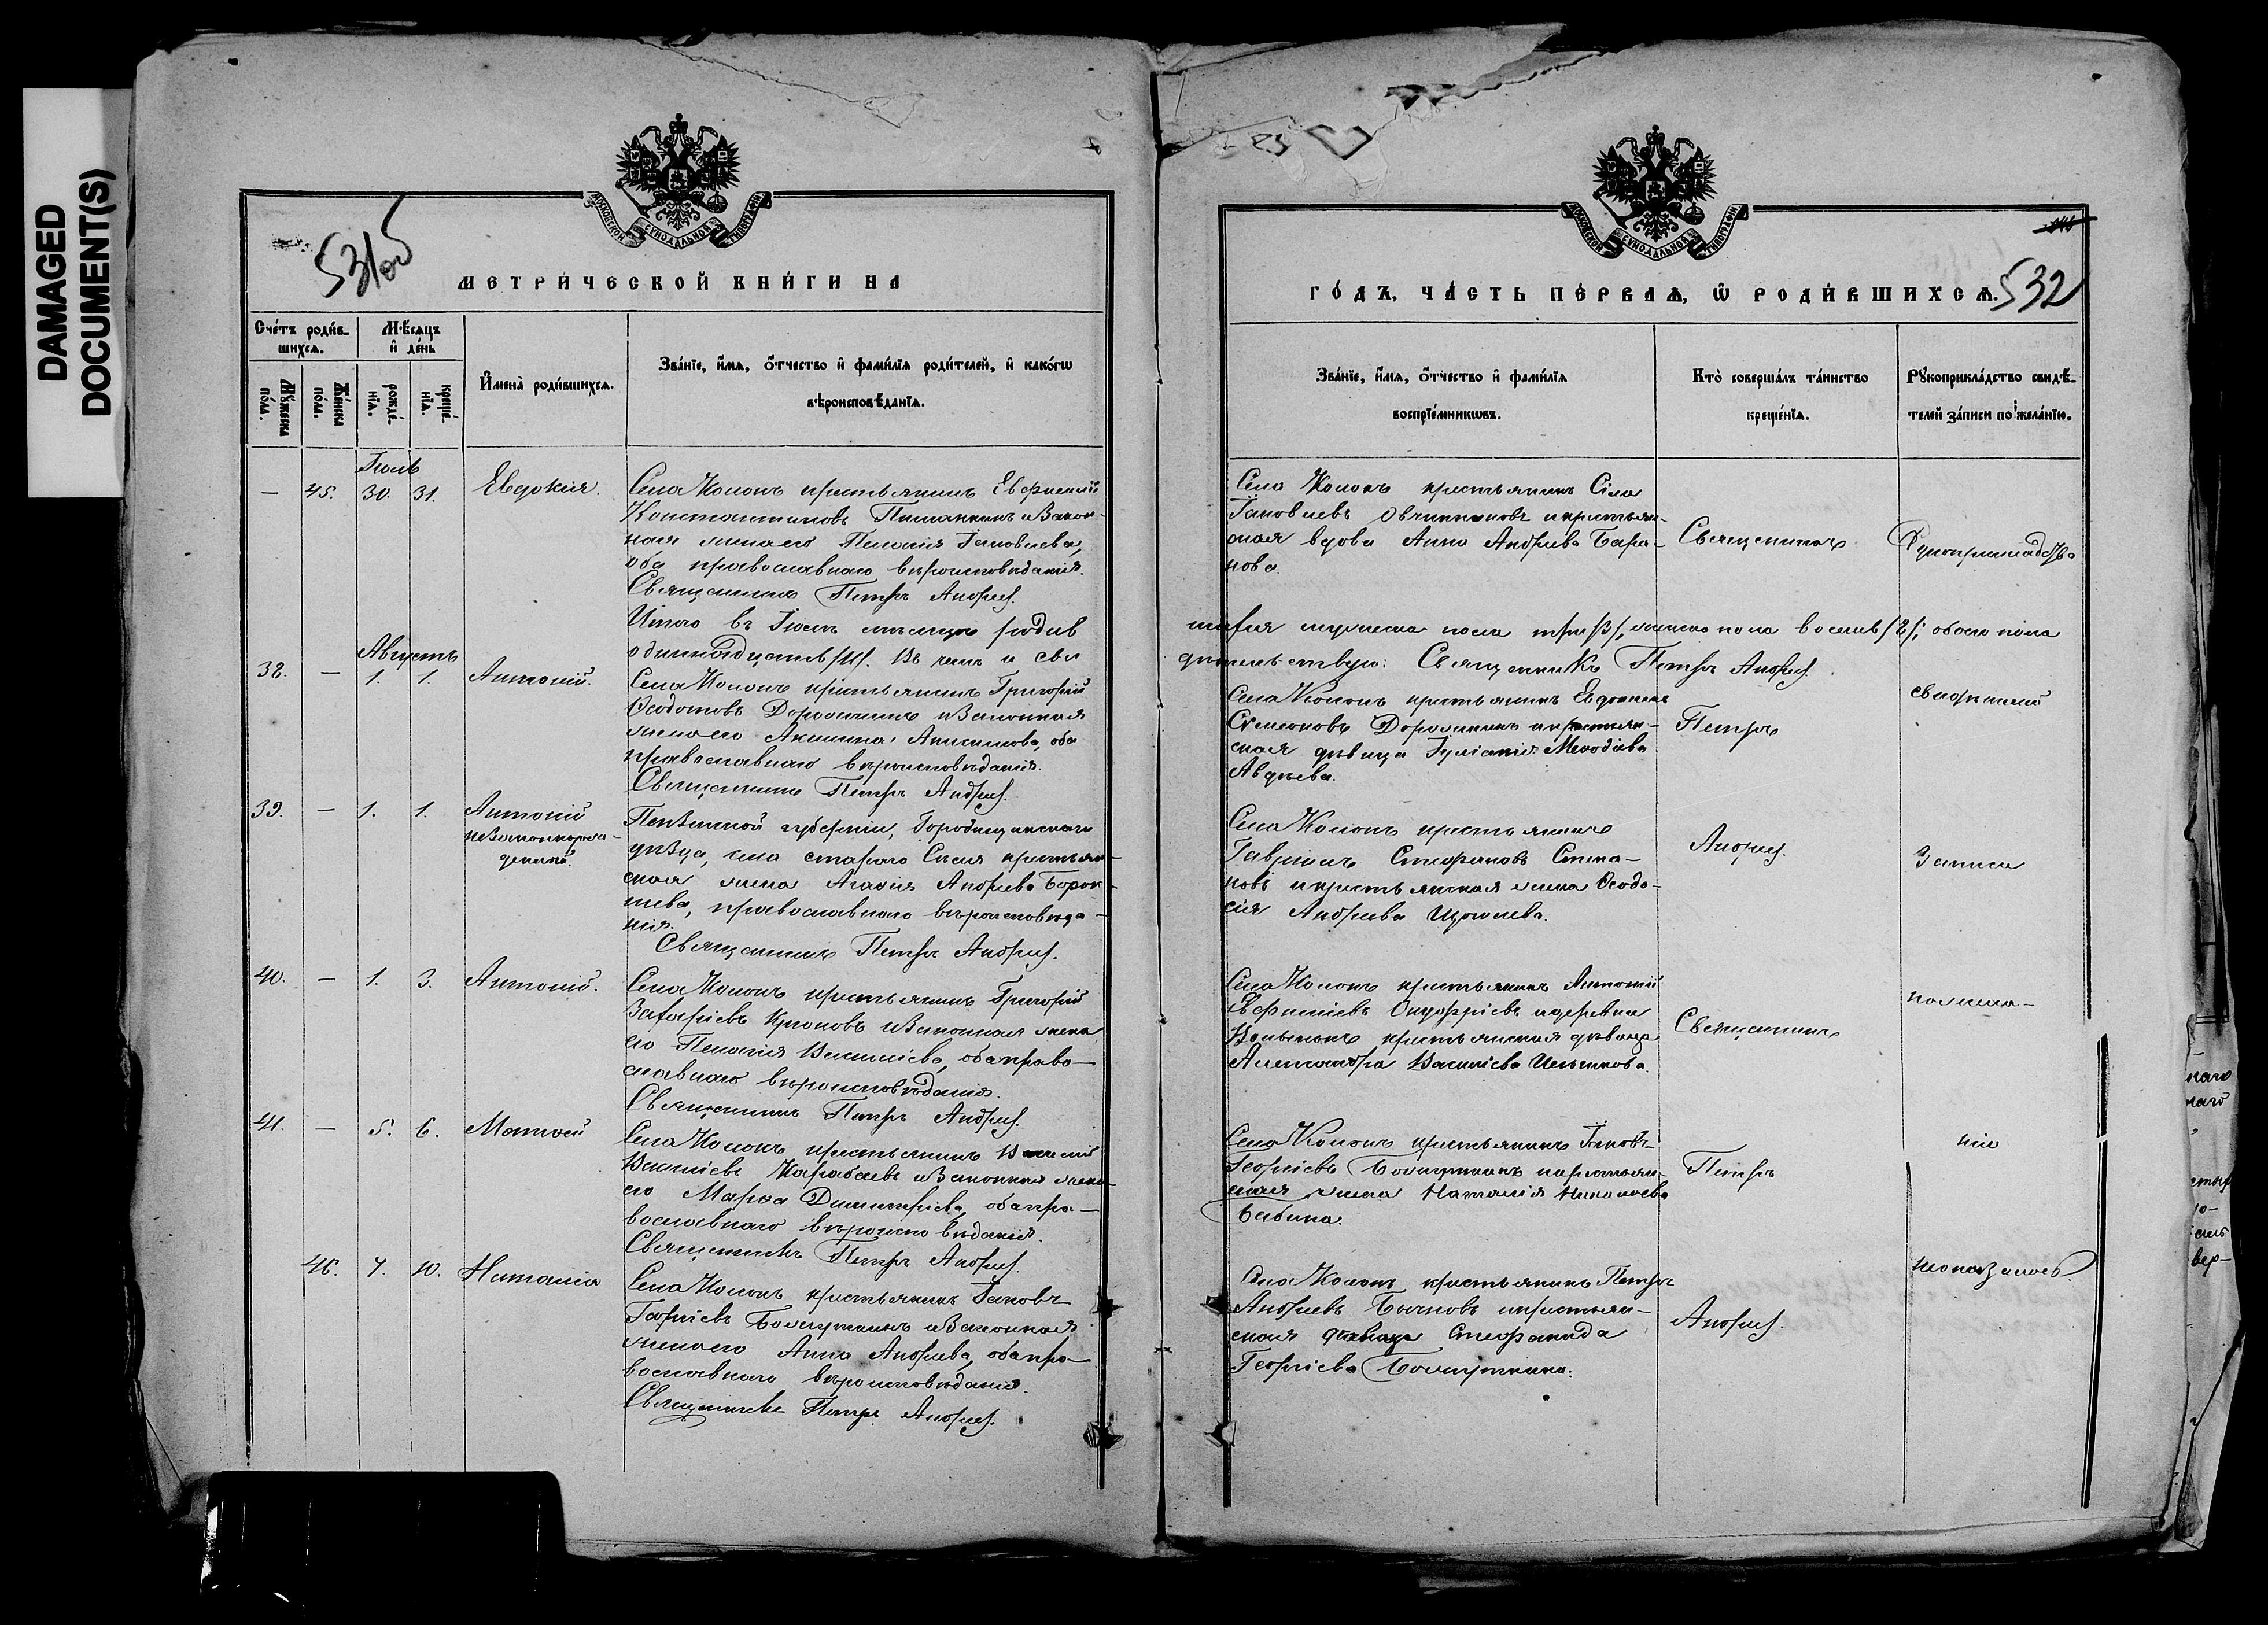 DAMAGED
DOCUMENT(S)
МОСКОВСКОЙ СУНОДАЛЬНОЙ ТИПОГРАФІИ
531об
МЕТРИ́ЧЕСКОЙ КНИ́ГИ НА
Сче́тъ роди́в-
шихсѧ.
Мѣ́сѧцъ
и҆ де́нь
Мꙋ́жеска
по́ла.
Же́нска
по́ла.
рожде́-
нїѧ.
креще́-
нїѧ.
И҆мена̀ роди́вшихсѧ.
Зва́нїе, и҆́мѧ, ѻ҆́тчество и҆ фами́лїѧ роди́телей, и҆ како́гѡ
вѣроисповѣ́данїѧ.
Іюль
— 45. 30. 31. Евдокія.
Села Колокъ крестьянинъ Евфимій
Константиновъ и закон-
ная жена его Пелагія Іаковлева,
оба православнаго вѣроисповѣданія.
Священникъ Петръ Андреев.
Итого въ Іюлѣ мѣсяцѣ родив
одиннадцать /11/. Въ чемъ и сви
Августъ
38. — 1. 1. Антоній.
Села Колокъ крестьянинъ Григорій
Ѳеодотовъ Дорожкинъ и законная
жена его Акилина оба
православнаго вѣроисповѣданія.
Священникъ Петръ Андреев.
39. — 1. 1. Антоній
незаконнорож-
денный.
Пензенской губерніи, Городищенскаго
уѣзда, села крестьян-
ская жена Агаѳія Андреева
православнаго вѣроисповѣда-
нія.
Священникъ Петръ Андреев.
40. — 1. 3. Антоній.
Села Колокъ крестьянинъ Григорій
Захаріевъ и законная жена
его Пелагія Василіева, оба право-
славнаго вѣроисповѣданія.
Священникъ Петръ Андреев.
41. — 5. 6. Матѳей
Села Колокъ крестьянинъ Василій
Василіевъ Карабаевъ и законная жена
его Марѳа Димитріева, оба пра-
вославнаго вѣроисповѣданія.
Священникъ Петръ Андреев.
46. 7. 10. Наталія
Села Колокъ крестьянинъ Іаковъ
Георгіевъ Болтушкинъ и законная
жена его Анна Андреева, оба пра-
вославнаго вѣроисповѣданія.
Священникъ Петръ Андреев.
МОСКОВСКОЙ СУНОДАЛЬНОЙ ТИПОГРАФІИ
532
ГО́ДЪ, ЧА́СТЬ ПЕ́РВАѦ, Ѡ҆ РОДИ́ВШИХСѦ.
Зва́нїе, и҆́мѧ, ѻ҆́тчество и҆ фами́лїѧ
воспрїе́мникѡвъ.
Кто̀ соверша́лъ та́инство
креще́нїѧ.
Рꙋкоприкла́дство свидѣ́-
телей за́писи по жела́нїю.
Села Колокъ крестьянинъ Сила
Іаковлевъ Овчинниковъ и крестьян-
ская вдова Анна Андреева Бара-
нова.
Священникъ
Рукоприкладства
шихся мужеска пола три /3/, женска пола восемь /8/; обоего пола
дѣтельствую: Священникъ Петръ Андреев.
Села Колокъ крестьянинъ Евдокимъ
Симеоновъ Дорожкинъ и крестьян-
ская дѣвица Іуліанія Меѳодіева
Авдѣева.
Петръ
свидѣтелей
Села Колокъ крестьянинъ
Гавріилъ Стефановъ
и крестьянская жена Ѳеодо-
сія Андреева
Андреев.
записи
Села Колокъ крестьянинъ Антоній
Евфиміевъ Онуфріевъ и деревни
крестьянская дѣвица
Александра Василіева
Священникъ
по жела-
Села Колокъ крестьянинъ Іаковъ
Георгіевъ Болтушкинъ и крестьян-
ская жена Наталія Николаева
Бабина.
Петръ
нію
Села Колокъ крестьянинъ Петръ
Андреевъ Бычковъ и крестьян-
ская дѣвица Стефанида
Георгіева Болтушкина.
Андреев.
не оказалось.